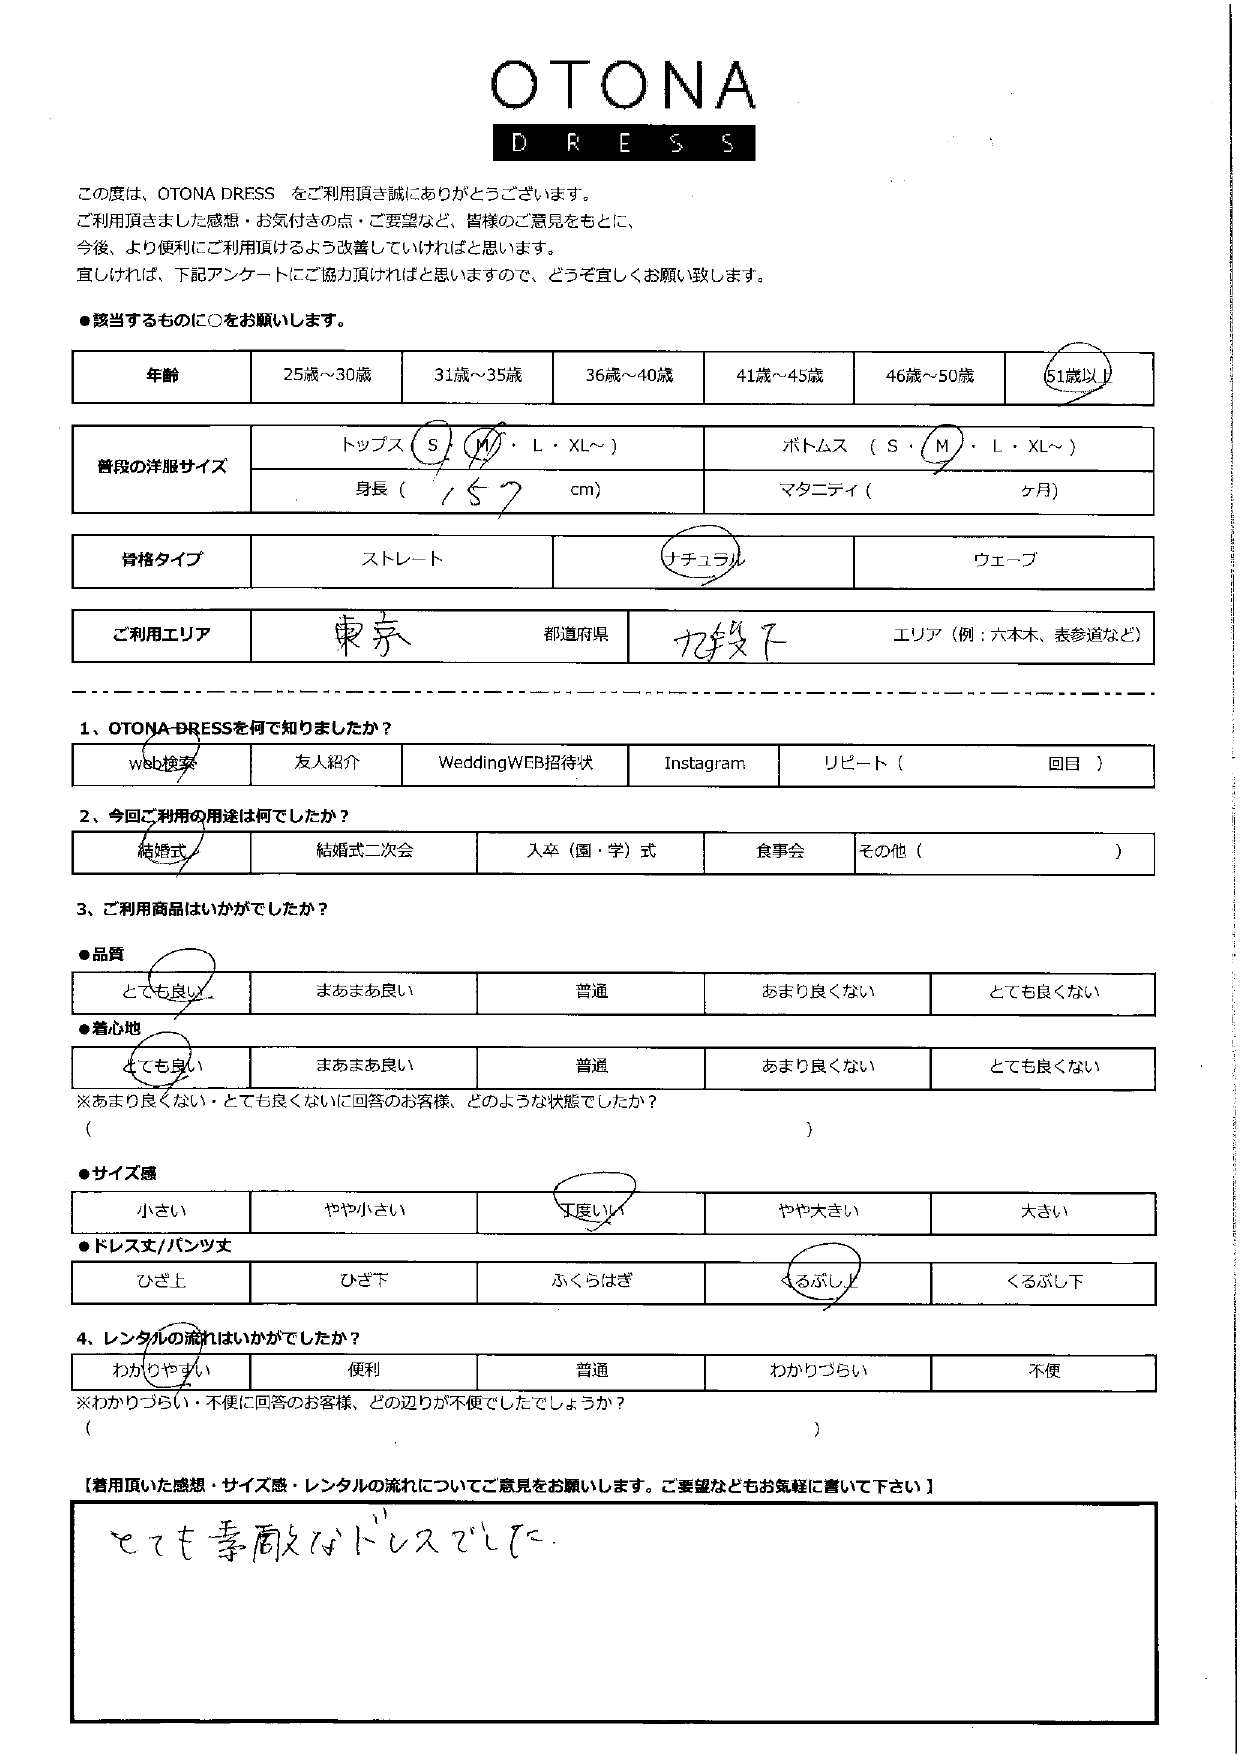 OTONA
DRESS
この度は、OTONA DRESS　をご利用頂き誠にありがとうございます。
ご利用頂きました感想・お気付きの点・ご要望など、皆様のご意見をもとに、
今後、より便利にご利用頂けるよう改善していければと思います。
宜しければ、下記アンケートにご協力頂ければと思いますので、どうぞ宜しくお願い致します。
●該当するものに○をお願いします。
年齢 25歳～30歳 31歳～35歳 36歳～40歳 41歳～45歳 46歳～50歳 51歳以上
普段の洋服サイズ トップス ( S ・ M ・ L ・ XL～ ) ボトムス ( S ・ M ・ L ・ XL～ )
身長 ( 157 cm) マタニティ ( ヶ月)
骨格タイプ ストレート ナチュラル ウェーブ
ご利用エリア 東京 都道府県 九段下 エリア（例：六本木、表参道など）
1、OTONA DRESSを何で知りましたか？
web検索 友人紹介 WeddingWEB招待状 Instagram リピート ( 回目 )
2、今回ご利用の用途は何でしたか？
結婚式 結婚式二次会 入卒（園・学）式 食事会 その他 ( )
3、ご利用商品はいかがでしたか？
●品質
とても良い まあまあ良い 普通 あまり良くない とても良くない
●着心地
とても良い まあまあ良い 普通 あまり良くない とても良くない
※あまり良くない・とても良くないに回答のお客様、どのような状態でしたか？
( )
●サイズ感
小さい やや小さい 丁度いい やや大きい 大きい
●ドレス丈/パンツ丈
ひざ上 ひざ下 ふくらはぎ くるぶし上 くるぶし下
4、レンタルの流れはいかがでしたか？
わかりやすい 便利 普通 わかりづらい 不便
※わかりづらい・不便に回答のお客様、どの辺りが不便でしたでしょうか？
( )
【着用頂いた感想・サイズ感・レンタルの流れについてご意見をお願いします。ご要望などもお気軽に書いて下さい】
とても素敵なドレスでした.